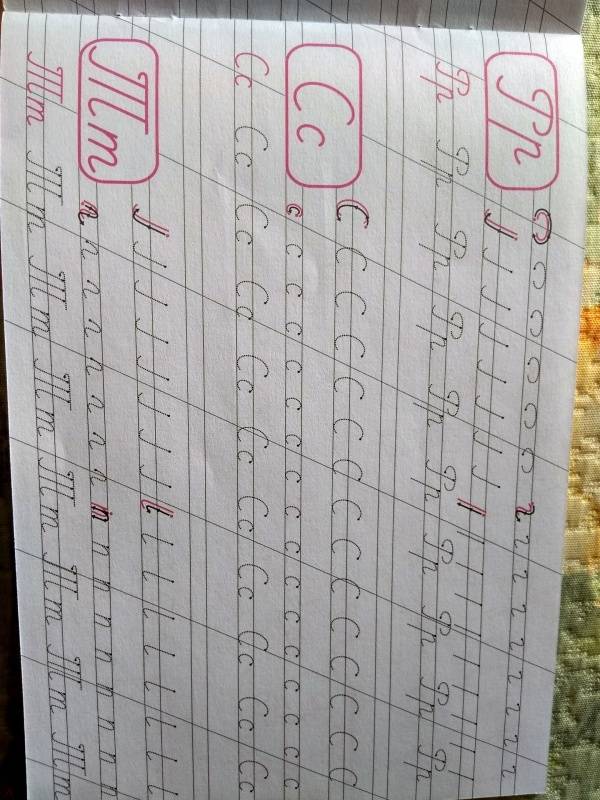 Рр
Рр Рр Рр Рр Рр Рр Рр Рр Рр Рр
Сс
С С С С С С С С С С С С С С С
с с с с с с с с с с с с с с с с с с
Сс Сс Сс Сс Сс Сс Сс Сс Сс Сс Сс
Тт
Тт Тт Тт Тт Тт Тт Тт Тт